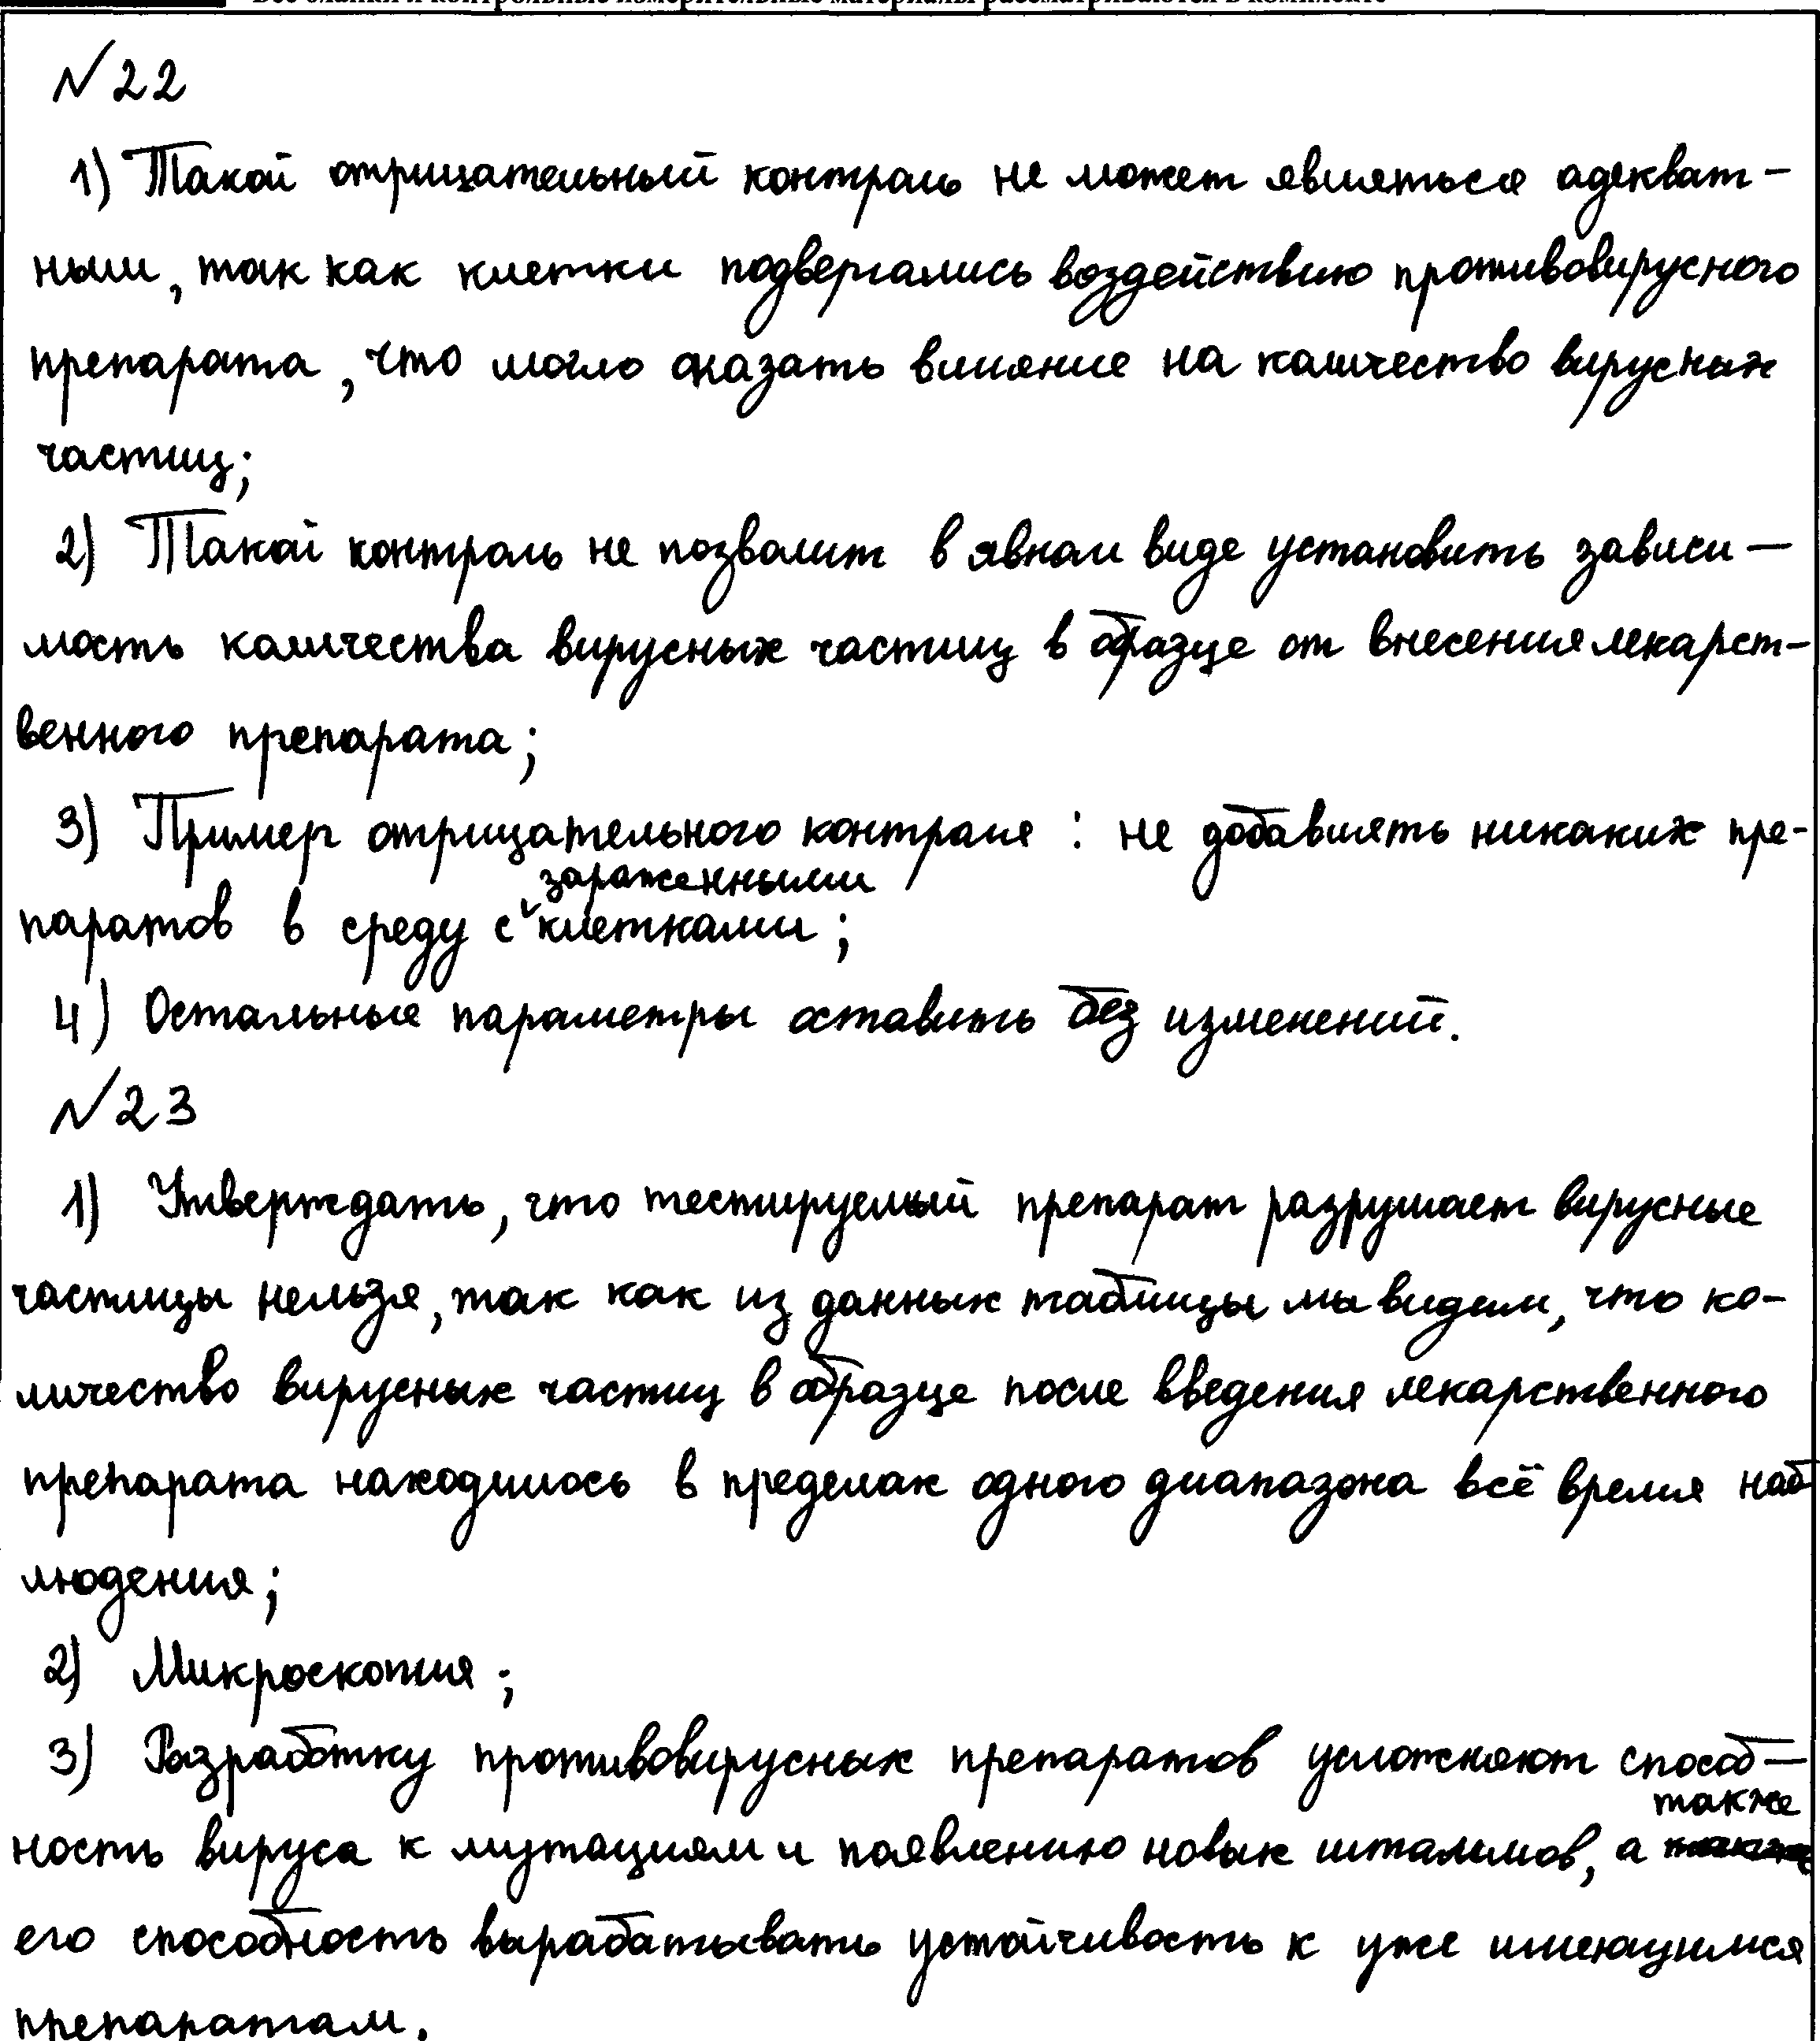 Все бланки и контрольные измерительные материалы рассматриваются в комплекте
№22
1) Такой отрицательный контроль не может являться адекват-
ным, так как клетки подвергались воздействию противовирусного
препарата, что могло оказать влияние на количество вирусных
частиц;
2) Такой контроль не позволит в явном виде установить зависи-
мость количества вирусных частиц в образце от внесения лекарст-
венного препарата;
3) Пример отрицательного контроля: не добавлять никаких пре-
паратов в среду с зараженными клетками;
4) Остальные параметры оставить без изменений.
№23
1) Утверждать, что тестируемый препарат разрушает вирусные
частицы нельзя, так как из данных таблицы мы видим, что ко-
личество вирусных частиц в образце после введения лекарственного
препарата находилось в пределах одного диапазона всё время наб
людения;
2) Микроскопия;
3) Разработку противовирусных препаратов усложняют способ-
ность вируса к мутациям и появлению новых штаммов, а также
его способность вырабатывать устойчивость к уже имеющимся
препаратам.